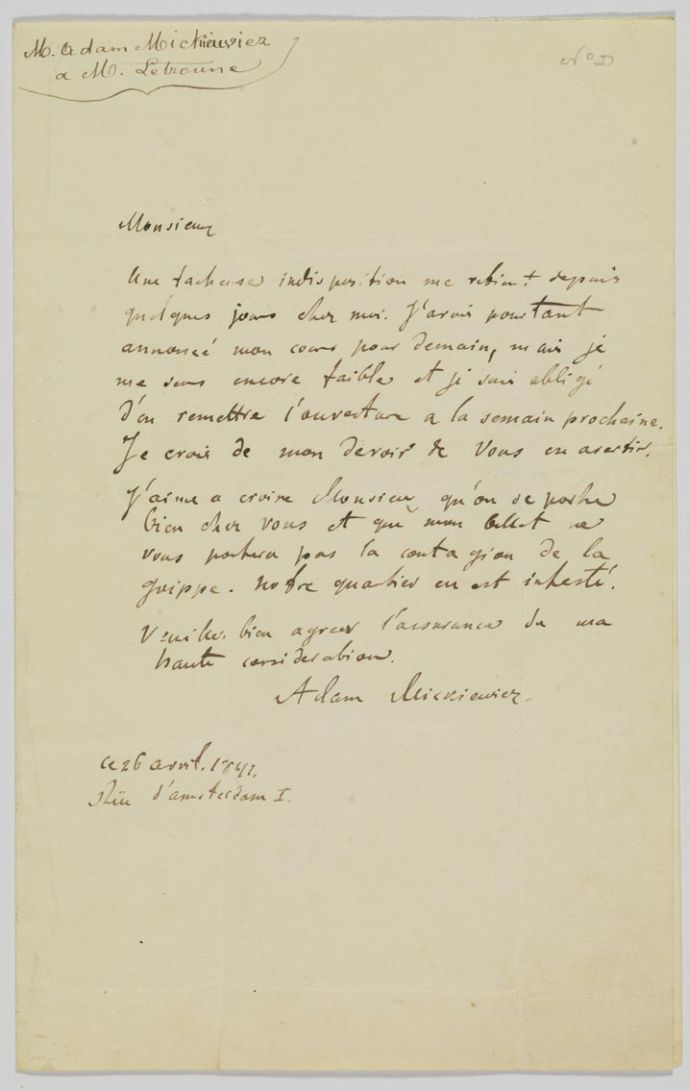 M. Adam Mickiewicz
a M. Letronne
N° D
Monsieur
Une facheuse indisposition me retient depuis
quelques jours chez moi. J'avais pourtant
annoncé mon cours pour demain, mais je
me sens encore faible et je suis obligé
d'en remettre l'ouverture a la semain prochaine.
Je crois de mon devoir de Vous en avertir.
J'aime a croire Monsieur, qu'on se porte
bien chez vous et que mon billet ne
vous portera pas la contagion de la
grippe. Notre quartier en est infesté.
Veuillez bien agreer l'assurance de ma
haute consideration.
Adam Mickiewicz.
ce 26 avril. 1841.
Rue d'amsterdam I.